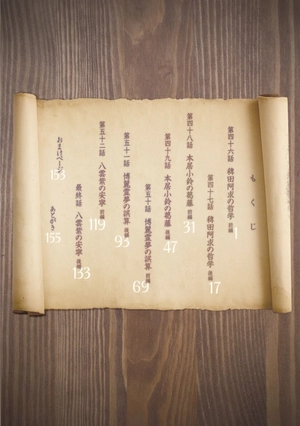 もくじ
第四十六話 稗田阿求の哲学 前編
1
第四十七話 稗田阿求の哲学 後編
17
第四十八話 本居小鈴の葛藤 前編
31
第四十九話 本居小鈴の葛藤 後編
47
第五十話 博麗霊夢の誤算 前編
69
第五十一話 博麗霊夢の誤算 後編
95
第五十二話 八雲紫の安寧 前編
119
最終話 八雲紫の安寧 後編
133
おまけページ
153
あとがき
155